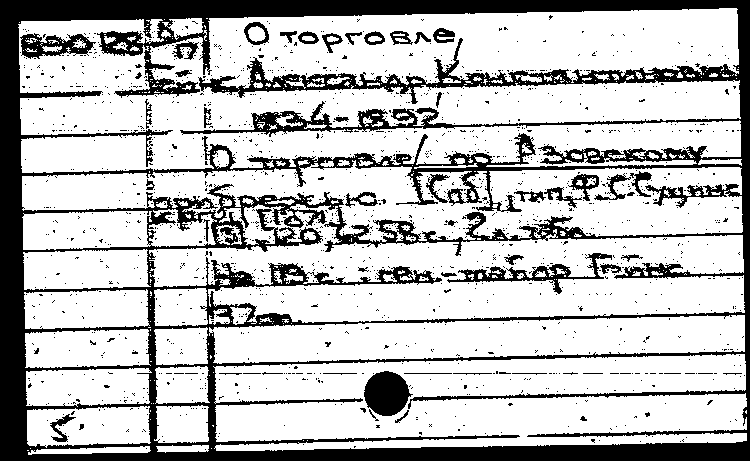 В 30 128 В/П О торговле
Гейнс, Александр Константинович
1834-1892
О торговле по Азовскому
прибрежью. [Спб], тип. Ф.С.Сущинс
кого, [1871]
[3], 120, 62, 58 с.; 2 л. табл.
На 19 с. : ген.-майор Гейнс.
37 см.